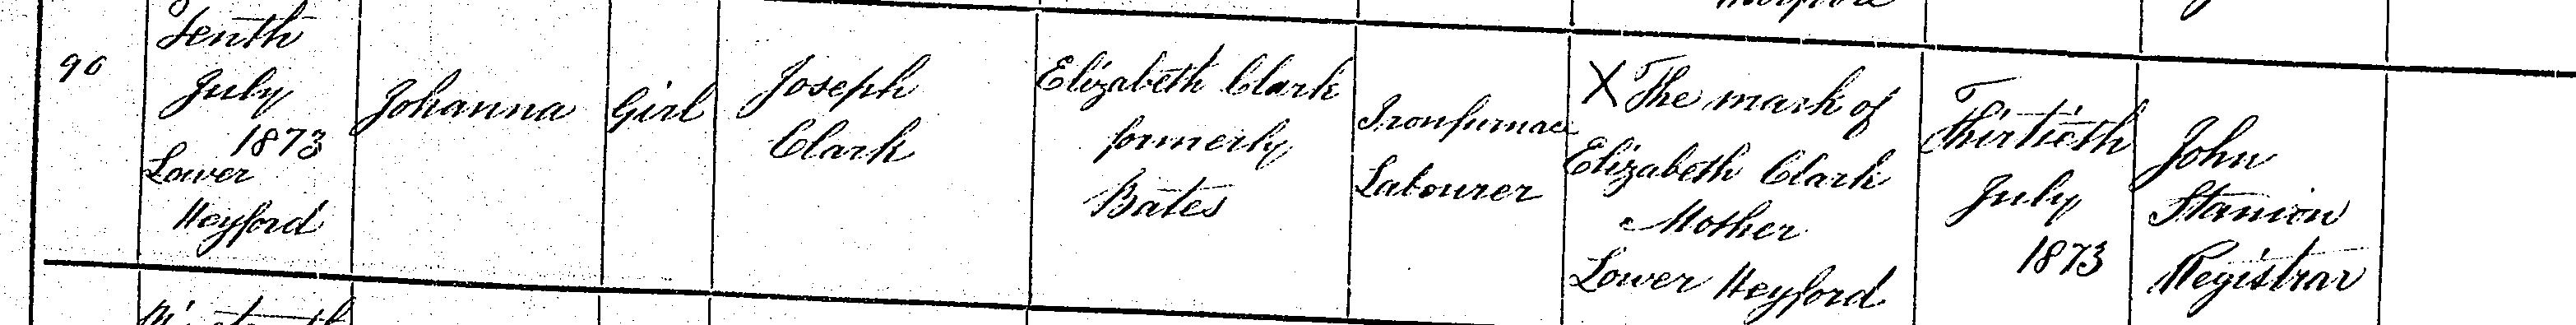 90
Tenth
July
1873
Lower
Heyford
Johanna
Girl
Joseph
Clark
Elizabeth Clark
formerly
Bates
Ironfurnace
Labourer
X The mark of
Elizabeth Clark
Mother
Lower Heyford
Thirtieth
July
1873
John
Stanion
Registrar